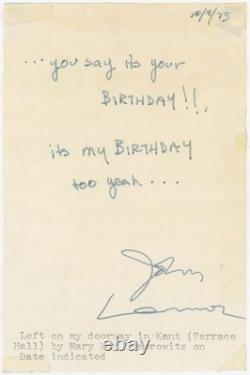 10/9/75
...you say its your
BIRTHDAY!!,
its my BIRTHDAY
too yeah...
John
Lennon
Left on my doorway in Kent (Terrace
Hall) by Mary on
Date indicated
watermark.com